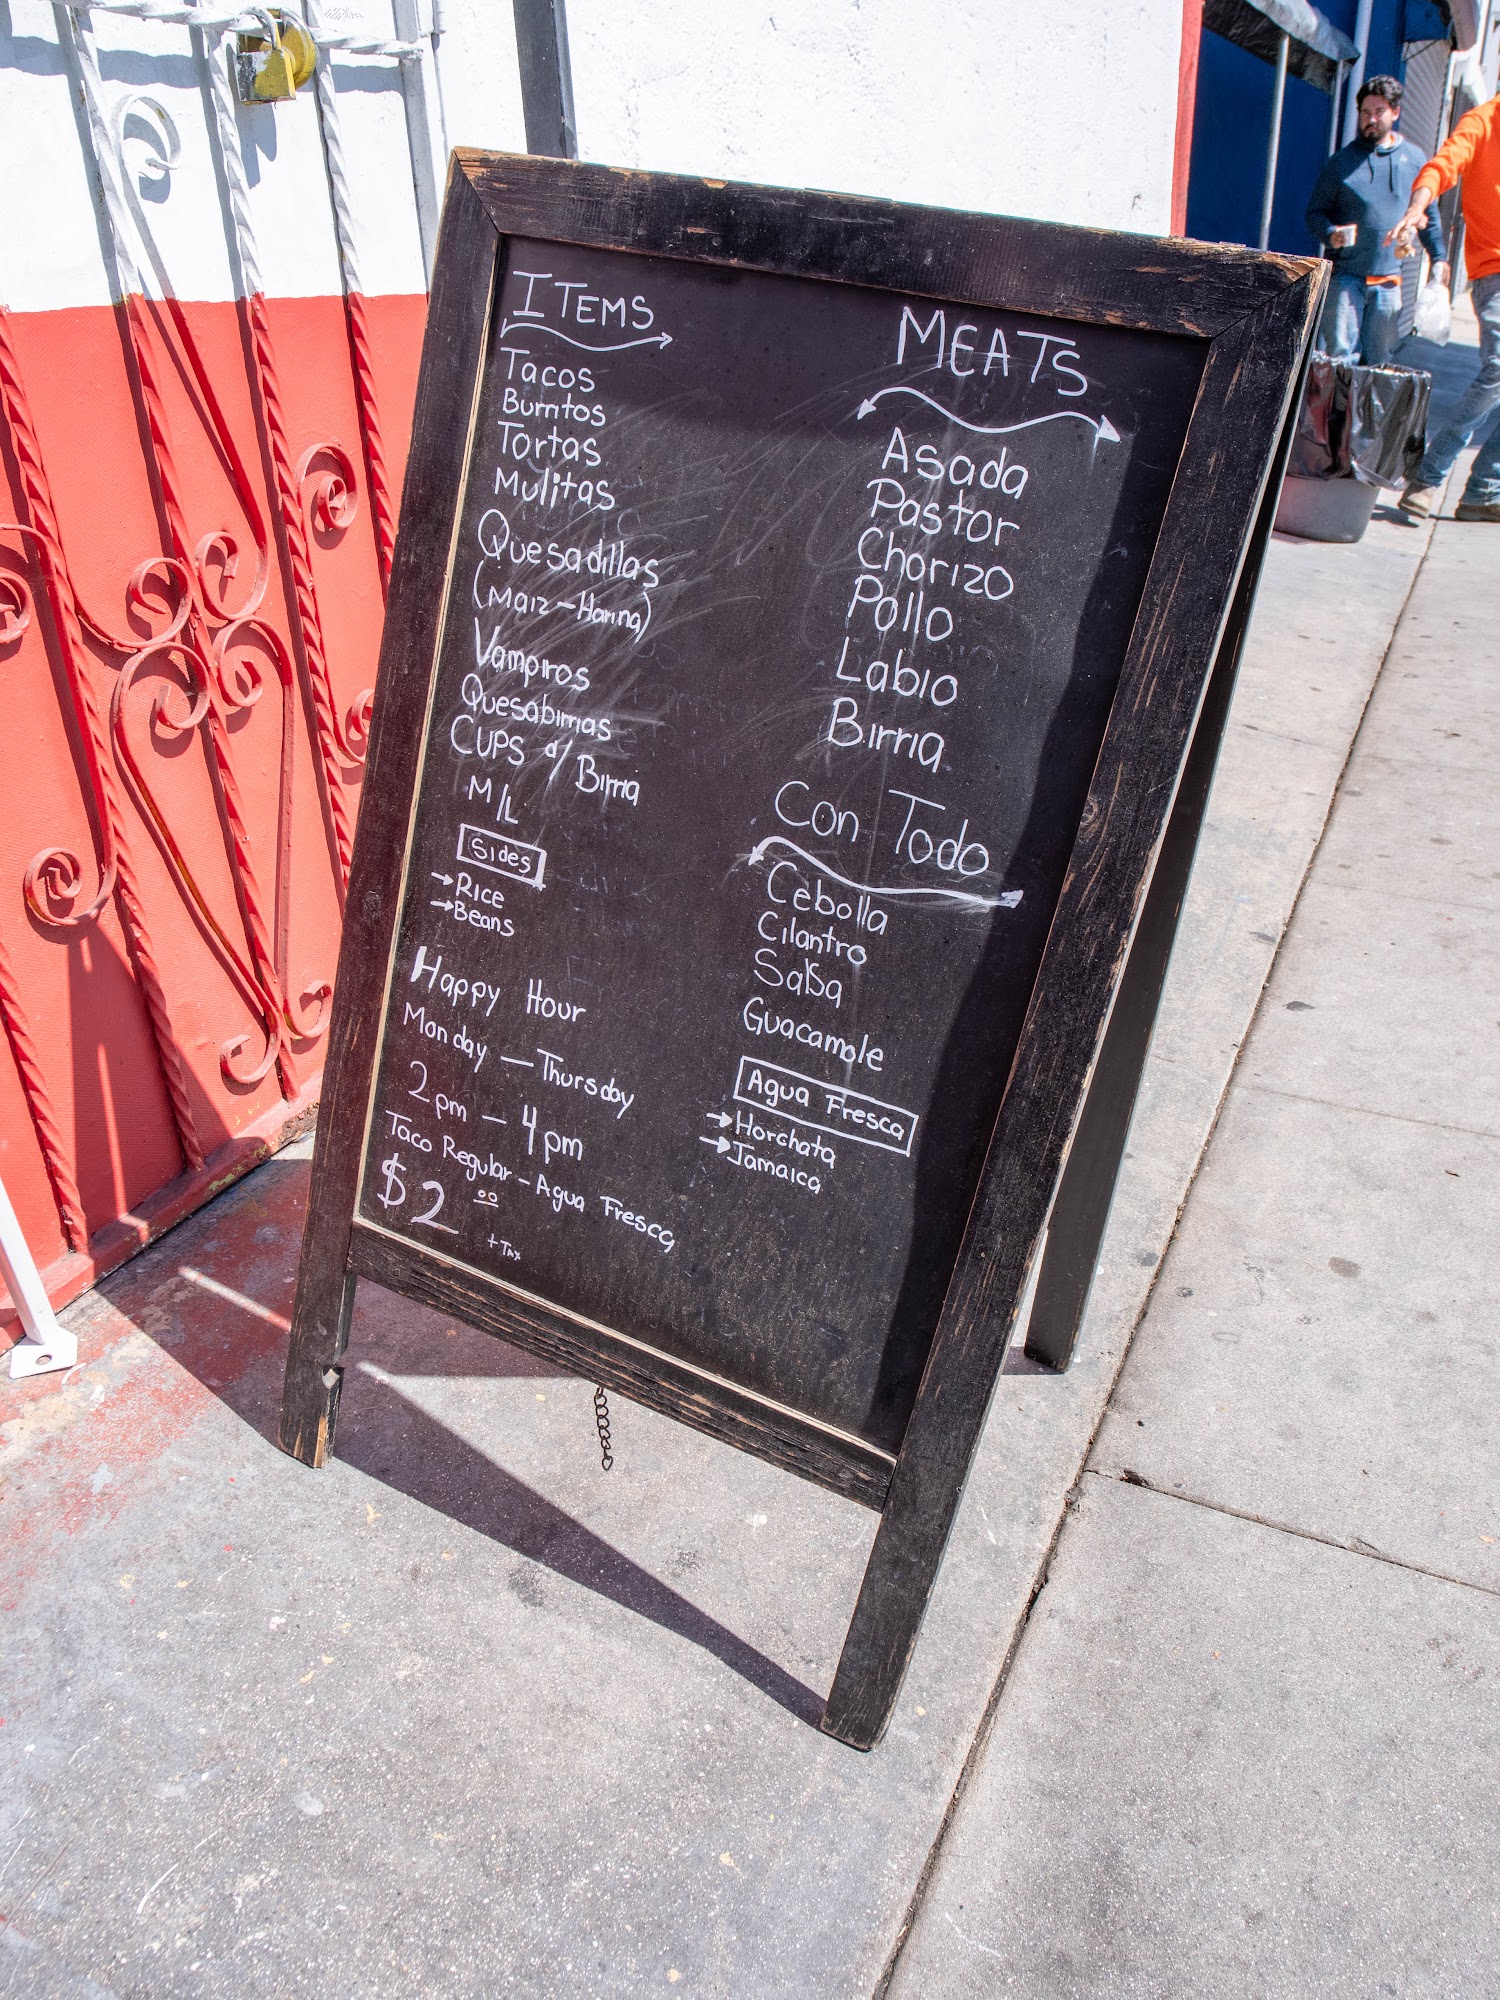 ITEMS
Tacos
Burritos
Tortas
Mulitas
Quesadillas
(Maiz - Harina)
Vampiros
Quesabirrias
CUPS d/ Birria
M/L
Sides
→Rice
→Beans
Happy Hour
Monday — Thursday
2pm — 4pm
Taco Regular - Agua Fresca
$2.00
+ Tax
MEATS
Asada
Pastor
Chorizo
Pollo
Labio
Birria
Con Todo
Cebolla
Cilantro
Salsa
Guacamole
Agua Fresca
→Horchata
→Jamaica